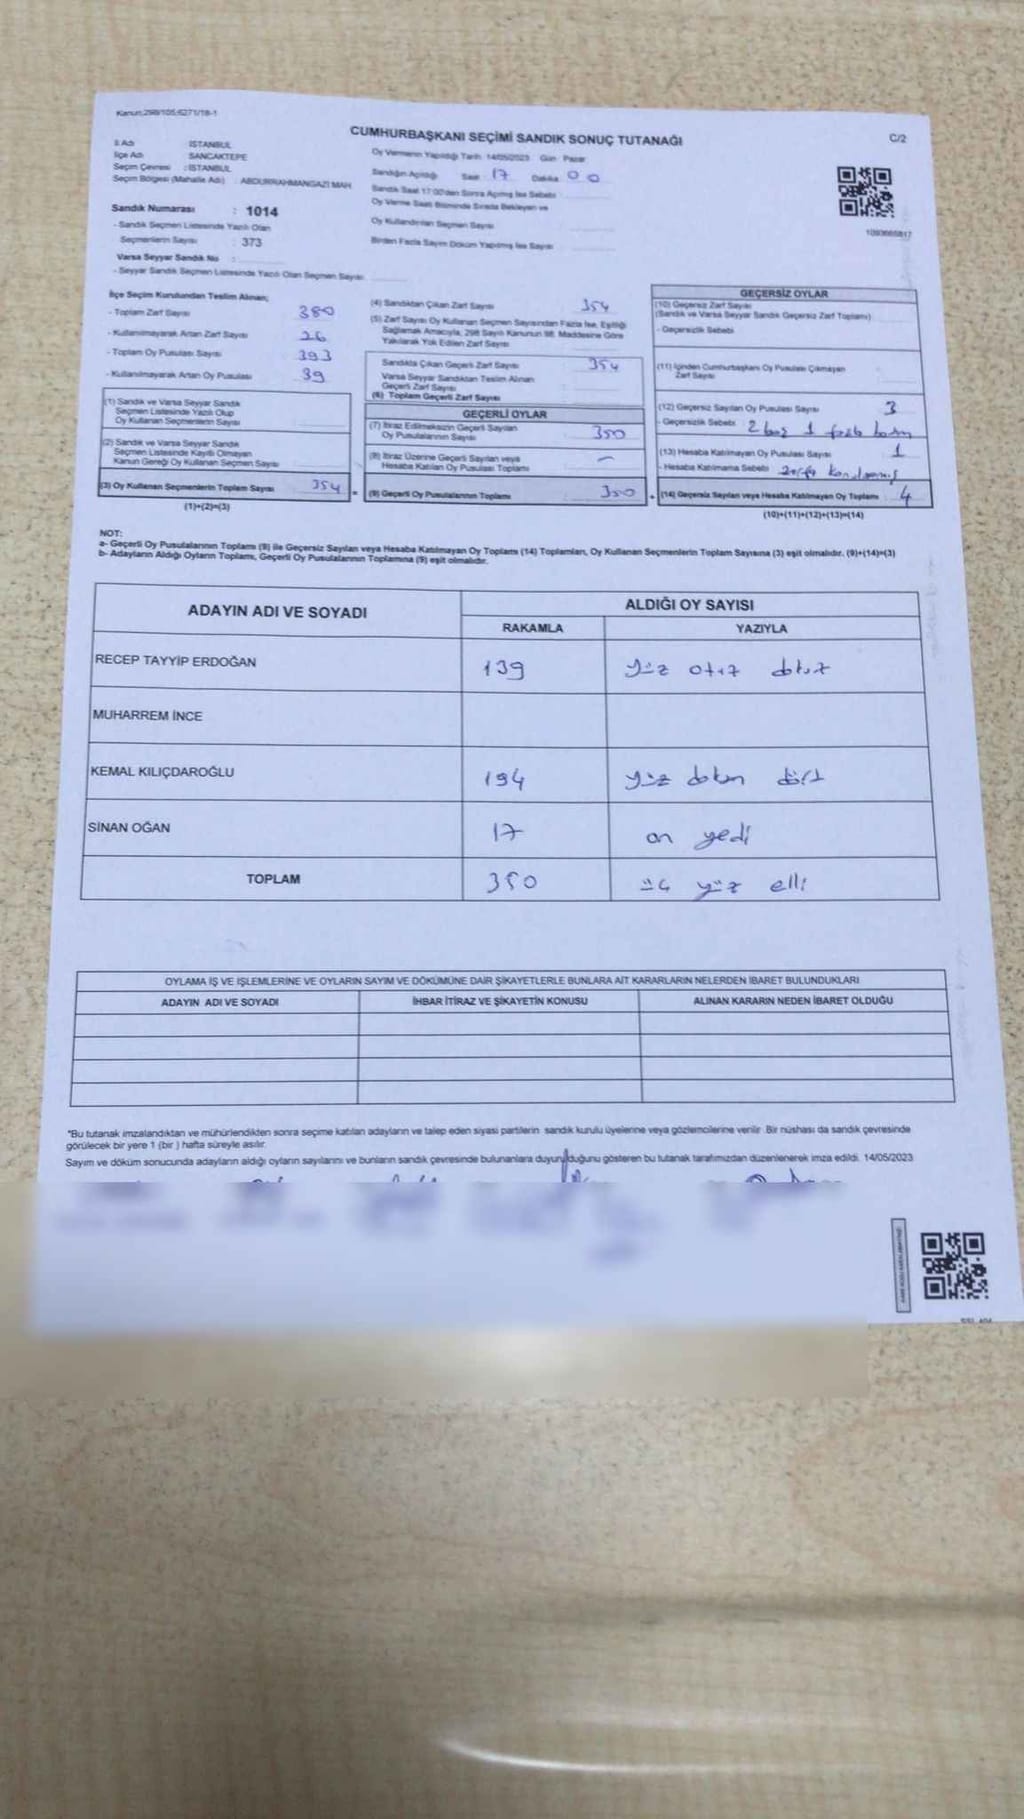 Kanun:298/105;6271/18-1
CUMHURBAŞKANI SEÇİMİ SANDIK SONUÇ TUTANAĞI
C/2
İl Adı : İSTANBUL
İlçe Adı : SANCAKTEPE
Seçim Çevresi : İSTANBUL
Seçim Bölgesi (Mahalle Adı) : ABDURRAHMANGAZI MAH
Sandık Numarası : 1014
- Sandık Seçmen Listesinde Yazılı Olan
Seçmenlerin Sayısı : 373
Varsa Seyyar Sandık No :
- Seyyar Sandık Seçmen Listesinde Yazılı Olan Seçmen Sayısı:
Oy Vermenin Yapıldığı Tarih: 14/05/2023 Gün: Pazar
Sandığın Açıldığı Saat 17 Dakika 00
Sandık Saat 17:00'den Sonra Açılmış İse Sebebi
Oy Verme Saati Bitiminde Sırada Bekleyen ve
Oy Kullandırılan Seçmen Sayısı
Birden Fazla Sayım Döküm Yapılmış İse Sayısı
1093665817
İlçe Seçim Kurulundan Teslim Alınan;
- Toplam Zarf Sayısı 380
- Kullanılmayarak Artan Zarf Sayısı 26
- Toplam Oy Pusulası Sayısı 393
- Kullanılmayarak Artan Oy Pusulası 39
(1) Sandık ve Varsa Seyyar Sandık
Seçmen Listesinde Yazılı Olup
Oy Kullanan Seçmenlerin Sayısı
(2) Sandık ve Varsa Seyyar Sandık
Seçmen Listesinde Kayıtlı Olmayan
Kanun Gereği Oy Kullanan Seçmen Sayısı
(3) Oy Kullanan Seçmenlerin Toplam Sayısı 354 =
(1)+(2)=(3)
(4) Sandıktan Çıkan Zarf Sayısı 354
(5) Zarf Sayısı Oy Kullanan Seçmen Sayısından Fazla İse, Eşitliği
Sağlamak Amacıyla, 298 Sayılı Kanunun 98. Maddesine Göre
Yakılarak Yok Edilen Zarf Sayısı
Sandıkta Çıkan Geçerli Zarf Sayısı 354
Varsa Seyyar Sandıktan Teslim Alınan
Geçerli Zarf Sayısı
(6) Toplam Geçerli Zarf Sayısı
GEÇERLİ OYLAR
(7) İtiraz Edilmeksizin Geçerli Sayılan
Oy Pusulalarının Sayısı 350
(8) İtiraz Üzerine Geçerli Sayılan veya
Hesaba Katılan Oy Pusulası Toplamı -
(9) Geçerli Oy Pusulalarının Toplamı 350 +
GEÇERSİZ OYLAR
(10) Geçersiz Zarf Sayısı
(Sandık ve Varsa Seyyar Sandık Geçersiz Zarf Toplamı)
- Geçersizlik Sebebi
(11) İçinden Cumhurbaşkanı Oy Pusulası Çıkmayan
Zarf Sayısı
(12) Geçersiz Sayılan Oy Pusulası Sayısı 3
- Geçersizlik Sebebi 2 boş 1 fazla
(13) Hesaba Katılmayan Oy Pusulası Sayısı 1
- Hesaba Katılmama Sebebi zarfa konulmamış
(14) Geçersiz Sayılan veya Hesaba Katılmayan Oy Toplamı 4
(10)+(11)+(12)+(13)=(14)
NOT:
a- Geçerli Oy Pusulalarının Toplamı (9) ile Geçersiz Sayılan veya Hesaba Katılmayan Oy Toplamı (14) Toplamları, Oy Kullanan Seçmenlerin Toplam Sayısına (3) eşit olmalıdır. (9)+(14)=(3)
b- Adayların Aldığı Oyların Toplamı, Geçerli Oy Pusulalarının Toplamına (9) eşit olmalıdır.
ADAYIN ADI VE SOYADI ALDIĞI OY SAYISI
RAKAMLA YAZIYLA
RECEP TAYYİP ERDOĞAN 139 yüz otuz dokuz
MUHARREM İNCE
KEMAL KILIÇDAROĞLU 194 yüz doksan dört
SİNAN OĞAN 17 on yedi
TOPLAM 350 üç yüz elli
OYLAMA İŞ VE İŞLEMLERİNE VE OYLARIN SAYIM VE DÖKÜMÜNE DAİR ŞİKAYETLERLE BUNLARA AİT KARARLARIN NELERDEN İBARET BULUNDUKLARI
ADAYIN ADI VE SOYADI İHBAR İTİRAZ VE ŞİKAYETİN KONUSU ALINAN KARARIN NEDEN İBARET OLDUĞU
*Bu tutanak imzalandıktan ve mühürlendikten sonra seçime katılan adayların ve talep eden siyasi partilerin sandık kurulu üyelerine veya gözlemcilerine verilir. Bir nüshası da sandık çevresinde
görülecek bir yere 1 (bir ) hafta süreyle asılır.
Sayım ve döküm sonucunda adayların aldığı oyların sayılarını ve bunların sandık çevresinde bulunanlara duyurulduğunu gösteren bu tutanak tarafımızdan düzenlenerek imza edildi. 14/05/2023